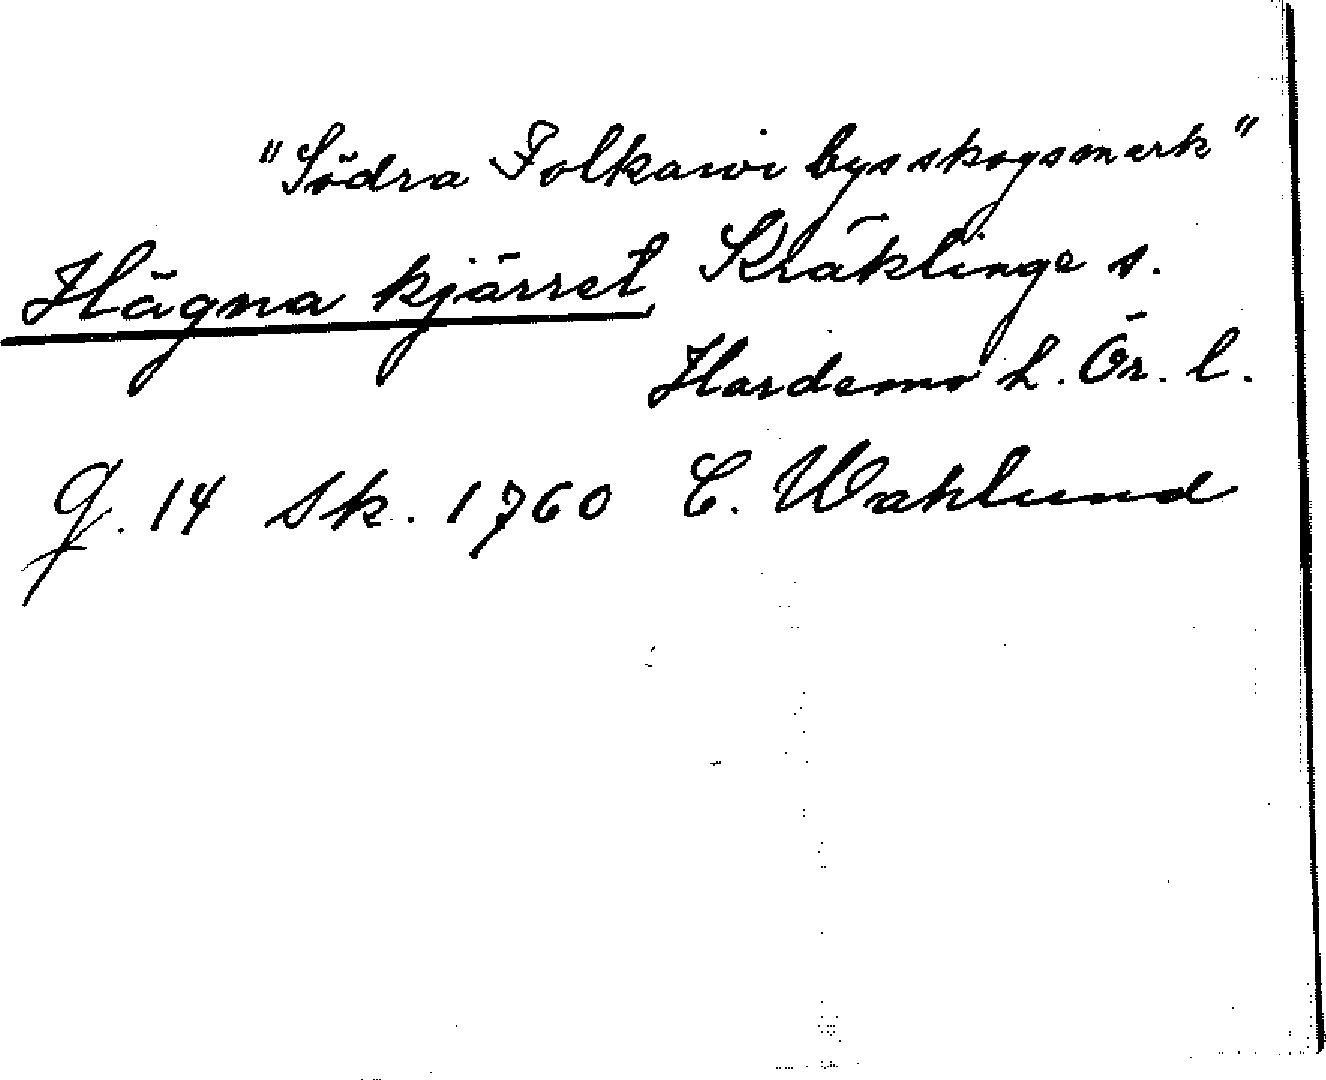 "Södra Folkawi bysskogsmark"
Hägna kjärret, Kräklinge s.
Hardemo h. Ör. l.
g. 14 Sk. 1760 C. Wahlund